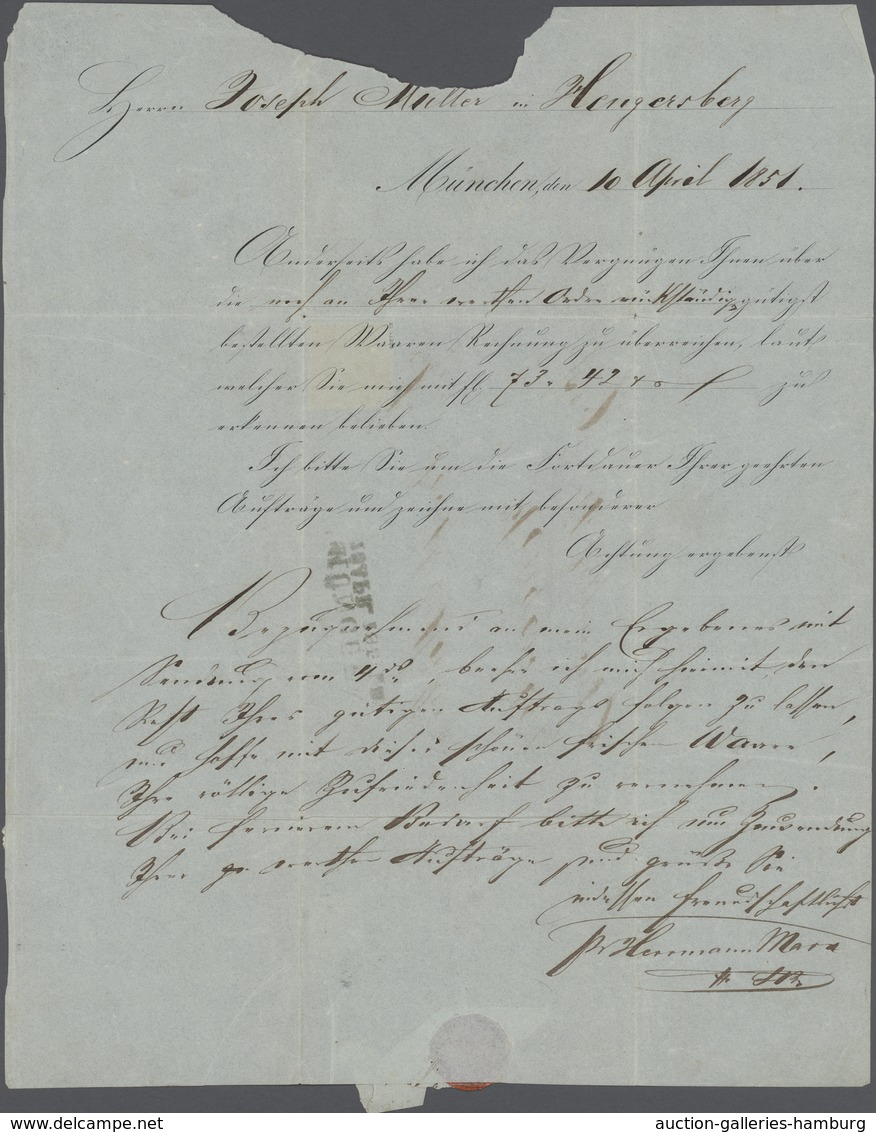 Herrn Joseph Müller in Hengersberg
München, den 10 April 1851.
Anderseits habe ich das Vergnügen Ihnen über
die noch an Ihrer werthen Ordre rückständig gütigst
bestellten Waaren Rechnung zu überreichen, laut
welcher Sie mich mit fl. 73 42 x zu
erkennen belieben.
Ich bitte Sie um die Fortdauer Ihrer geehrten
Aufträge und zeichne mit besonderer
Achtung ergebenst
Bezugnehmend an mein Ergebenes mit
Sendung vom 4 ds, beehre ich mich hiemit, den
Rest Ihres gütigen Auftrags folgen zu lassen,
und hoffe mit dieser schönen frischen Waare,
Ihre völlige Zufriedenheit zu vernehmen.
Bei fernerem Bedarf bitte ich um Zuwendung
Ihrer werthen Aufträge und grüße Sie
indessen freundschaftlichst
pr Herrmann Marx
auction-galleries-hamburg